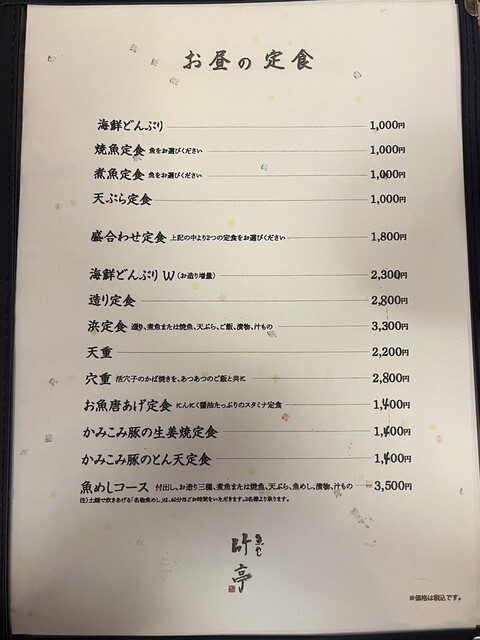 お昼の定食
海鮮どんぶり 1,000円
焼魚定食 魚をお選びください 1,000円
煮魚定食 魚をお選びください 1,000円
天ぷら定食 1,000円
盛合わせ定食 上記の中より2つの定食をお選びください 1,800円
海鮮どんぶりW（お造り増量） 2,300円
造り定食 2,800円
浜定食 造り、煮魚または焼魚、天ぷら、ご飯、漬物、汁もの 3,300円
天重 2,200円
穴重 活穴子のかば焼きを、あつあつのご飯と共に 2,800円
お魚唐あげ定食 にんにく醤油たっぷりのスタミナ定食 1,400円
かみこみ豚の生姜焼定食 1,400円
かみこみ豚のとん天定食 1,400円
魚めしコース 付出し、お造り三種、煮魚または焼魚、天ぷら、魚めし、漬物、汁もの 3,500円
注）土鍋で炊きあげる「名物魚めし」は、40分ほどお時間をいただきます。2名様より承ります。
魚めし
竹亭
※価格は税込です。